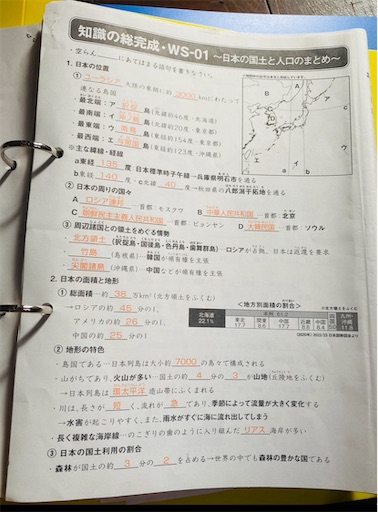 知識の総完成・WS-01 ～日本の国土と人口のまとめ～
・空らん　にあてはまる語句を書きなさい。
1. 日本の位置
① ユーラシア 大陸の東側に約 3000 kmにわたって
連なる島国
・最北端：ア 択捉 島(北緯約46度・北海道)
・最南端：イ 沖ノ鳥 島(北緯約20度・東京都)
・最東端：ウ 南鳥 島(東経約154度・東京都)
・最西端：エ 与那国 島(東経約123度・沖縄県)
※主な緯線・経線
a東経 135 度：日本標準時子午線→兵庫県明石市を通る
b東経 140 度・c北緯 40 度→秋田県の八郎潟干拓地を通る
② 日本の周りの国々
A ロシア連邦 …首都：モスクワ B 中華人民共和国 …首都：北京
C 朝鮮民主主義人民共和国 …首都：ピョンヤン D 大韓民国 …首都：ソウル
③ 周辺諸国との領土をめぐる情勢
・北方領土 (択捉島・国後島・色丹島・歯舞群島)→ロシアが占拠、日本は返還を要求
・竹島 (島根県)…韓国が領有権を主張
・尖閣諸島 (沖縄県)…中国などが領有権を主張
2. 日本の面積と地形
① 総面積…約 38 万km²(北方領土をふくむ)
→ロシアの約 45 分の1、
アメリカの約 26 分の1、
中国の約 25 分の1
＜地方別面積の割合＞
北海道 22.1%
東北 17.7
関東 8.6
中部 17.7
近畿 8.8
中国 8.4
四国 5.0
九州・沖縄 11.8
② 地形の特色
・島国である…日本列島は大小約 7000 の島々で構成される
・山がちであり、火山が多い…国土の約 4 分の 3 が山地(丘陵地をふくむ)
→日本列島は 環太平洋 造山帯にふくまれる
・川は、長さが 短 く、流れが 急 であり、季節によって流量が大きく変化する
→水害が起こりやすく、また、雨水がすぐに海に流れ出してしまう
・長く複雑な海岸線…のこぎりの歯のように入り組んだ リアス 海岸が多い
③ 日本の国土利用の割合
・森林が国土の約 3 分の 2 を占める→世界の中でも森林の豊かな国である